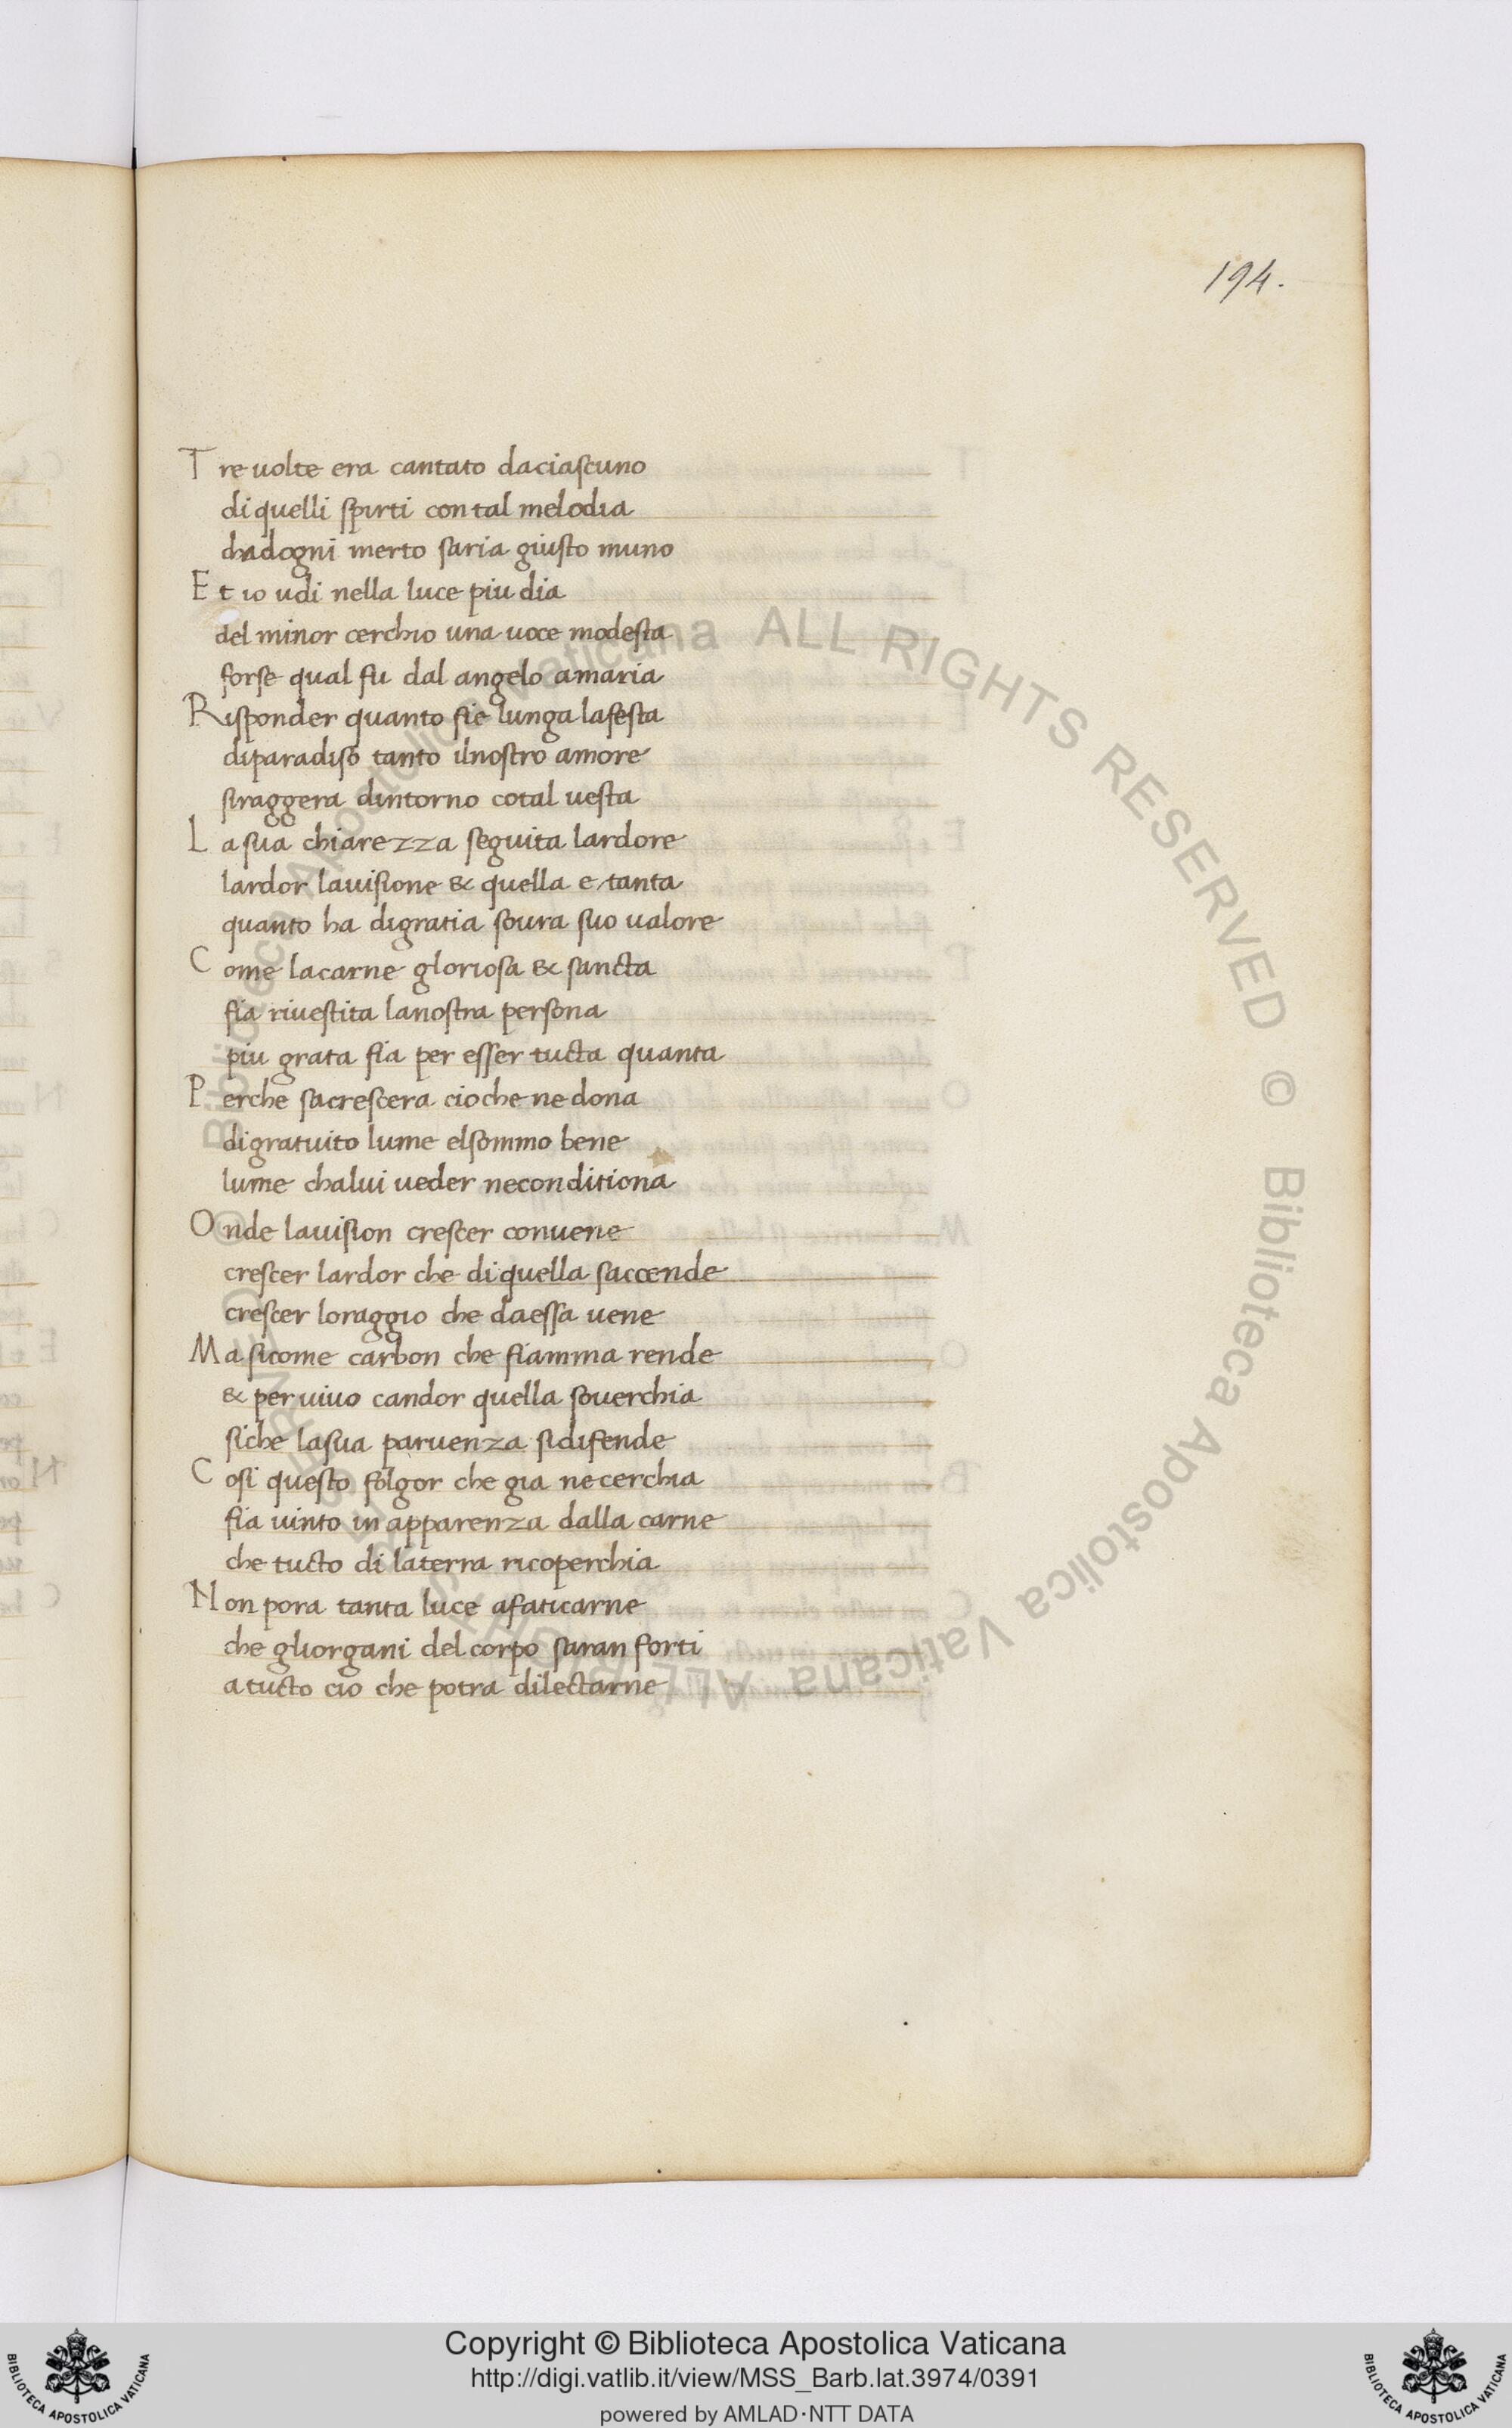 194.
Tre uolte era cantato daciascuno
diquelli spirti contal melodia
chadogni merto saria giusto muno
Et io udi nella luce piu dia
del minor cerchio una uoce modesta
forse qual fu dal angelo amaria
Risponder quanto fie lunga lafesta
diparadiso tanto ilnostro amore
siraggera dintorno cotal uesta
La sua chiarezza seguita lardore
lardor lauisione & quella e tanta
quanto ha digratia soura suo ualore
Come lacarne gloriosa & sancta
fia riuestita lanostra persona
piu grata fia per esser tucta quanta
Perche sacrescera cioche ne dona
digratuito lume elsommo bene
lume chalui ueder neconditiona
Onde lauision crescer conuene
crescer lardor che diquella saccende
crescer loraggio che daessa uene
Ma sicome carbon che fiamma rende
& per uiuo candor quella souerchia
siche lasua paruenza sidifende
Cosi questo folgor che gia necerchia
fia uinto in apparenza dalla carne
che tucto di laterra ricoperchia
Non pora tanta luce afaticarne
che gliorgani del corpo saran forti
atucto cio che potra dilectarne
© Biblioteca Apostolica Vaticana ALL RIGHTS RESERVED © Biblioteca Apostolica Vaticana ALL RIGHTS RESERVED
Copyright © Biblioteca Apostolica Vaticana
http://digi.vatlib.it/view/MSS_Barb.lat.3974/0391
powered by AMLAD·NTT DATA
BIBLIOTECA APOSTOLICA VATICANA
BIBLIOTECA APOSTOLICA VATICANA